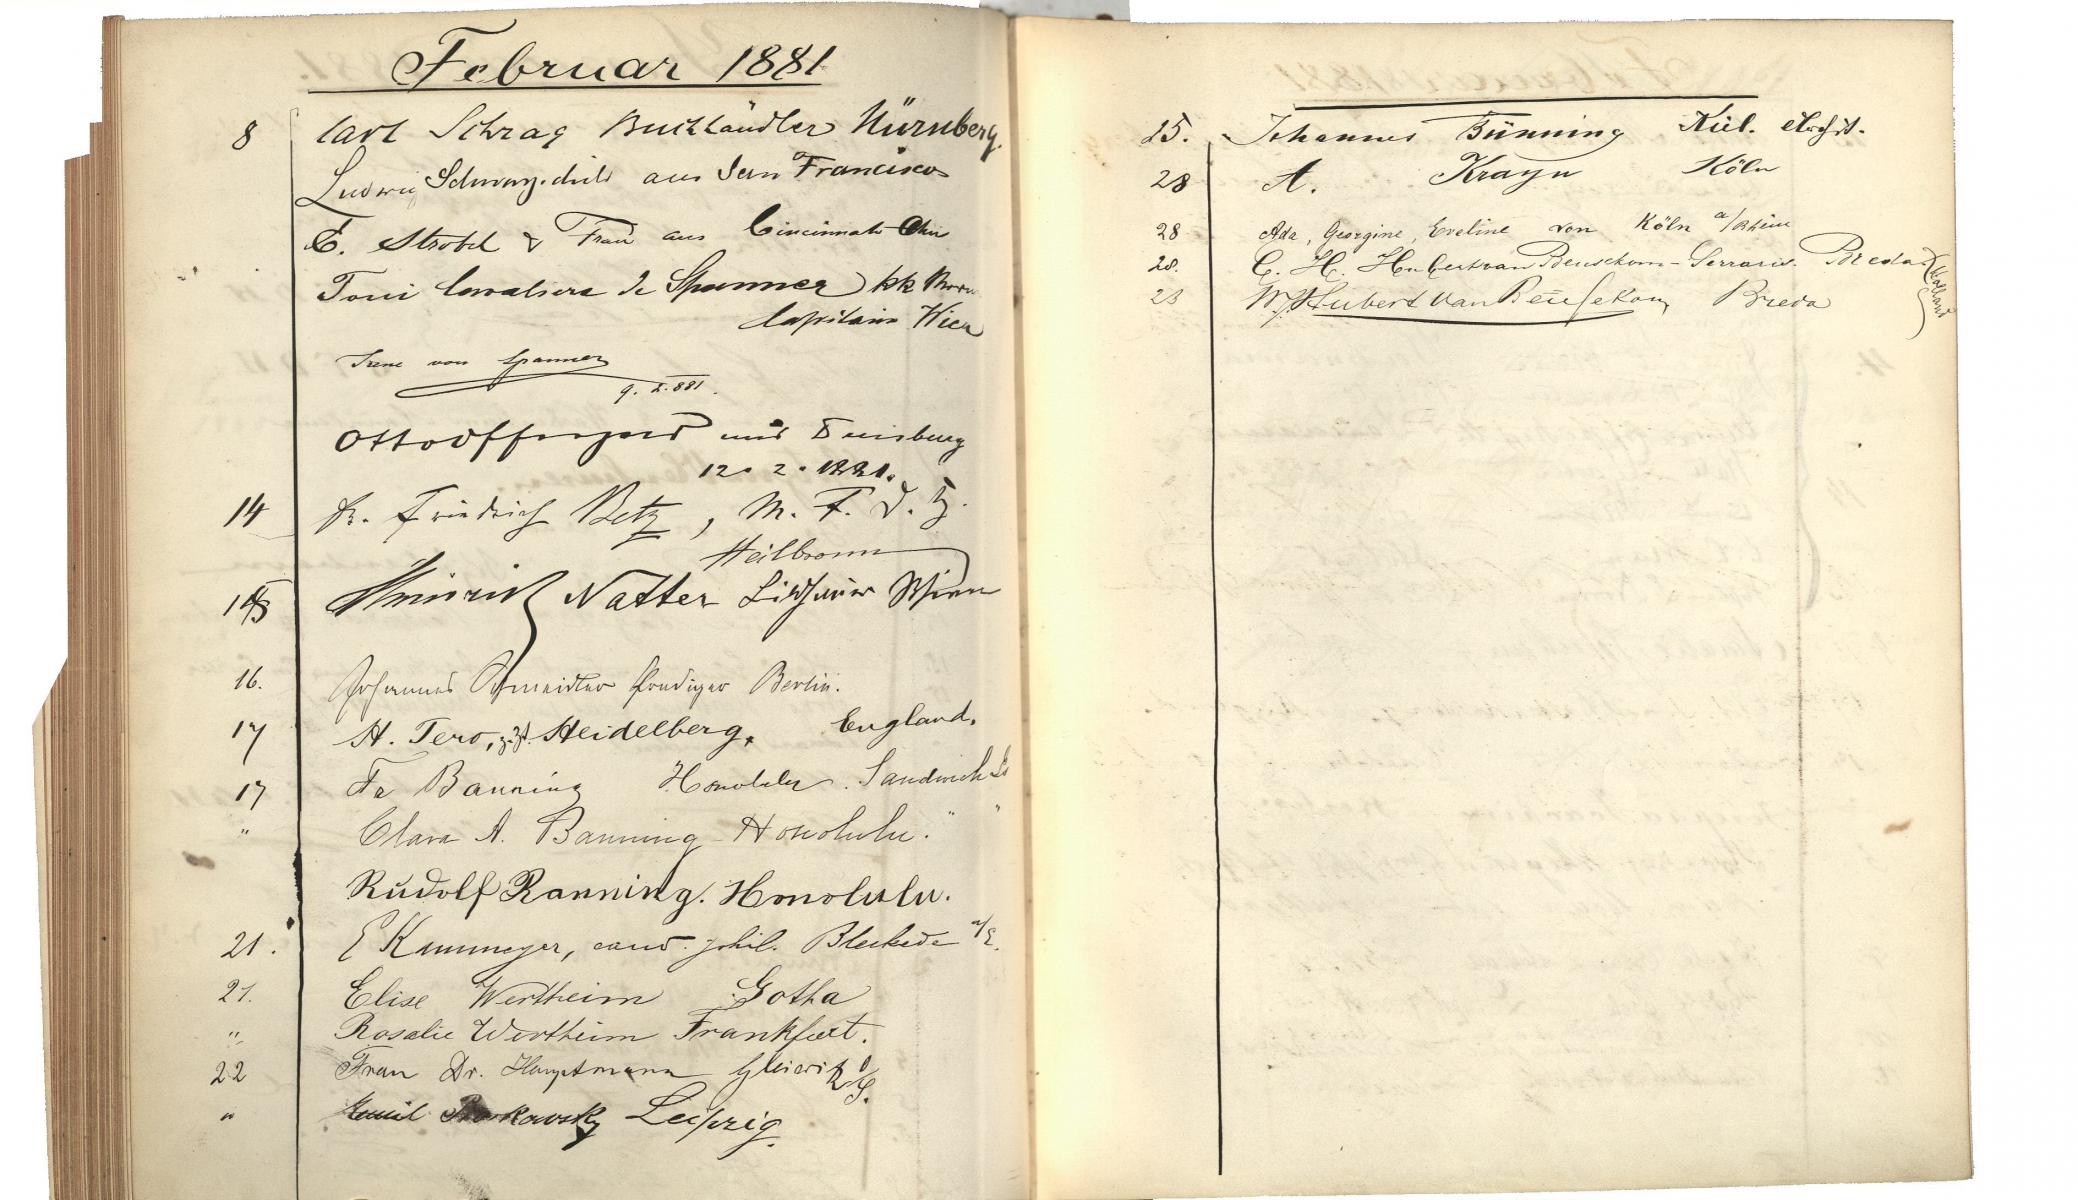 Februar 1881
8 Carl Schrag Buchhändler Nürnberg.
Ludwig Schwarzschild aus San Francisco
E. Strobel & Frau aus Cincinnati Ohio
Toni Cavaliere de Spanner kk
Capitain Wien
Irene von Spanner
9. 2. 881.
Otto und Duisburg
12. 2. 1881.
14 Dr. Friedrich Betz, M. F. D. H.
Heilbronn
15 Heinrich Natter Bildhauer Wien
16. Johannes Schmeidler Prediger Berlin.
17 H. Tero, z. Zt. Heidelberg, England.
17 Fr Banning Honolulu. Sandwich Is
" Clara A. Banning Honolulu. " "
Rudolf Banning. Honolulu.
21. E Kammeyer, cand. phil. Bleckede a/E.
21. Elise Wertheim Gotha
" Rosalie Wertheim Frankfurt.
22 Frau Dr. Hauptmann Gleiwitz O/S.
" Emil Leipzig.
25. Johannes Bünning Kiel. Archit.
28 A. Krayn Köln
28 Ada, Georgine, Eveline von Köln a/Rhein
28. C. H. Hubert van Beusekom-Serraris. Breda (Holland)
28 W. Hubert van Beusekom, Breda